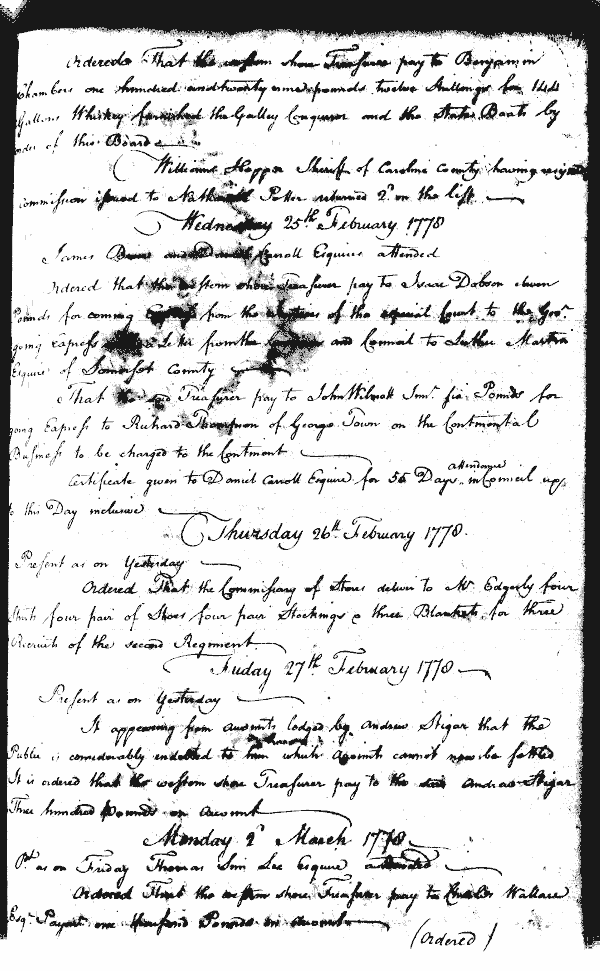 Ordered That the western shore Treasurer pay to Benjamin
Chambers one hundred and twenty nine pounds twelve shillings for 144
Gallons Whiskey furnished the Galley Conqueror and the State Boats by
order of this Board
William Hopper Sheriff of Caroline County having resign
commission issued to Nathaniel Potter returned 2d on the list
Wednesday 25th February 1778
James and Daniel Carroll Esquires attended
Ordered that the western shore Treasurer pay to Isaac Dobson eleven
Pounds for coming Express from the of the special Court to the Govr.
going express from the and Council to Luther Martin
Esquire of Somerset County
That the said Treasurer pay to John Wilmott Junr. six Pounds for
going Express to Richard Thompson of George Town on the Continental
Business to be charged to the Continent
Certificate given to Daniel Carroll Esquire for 56 Days attendance in Council up
to this Day inclusive
Thursday 26th February 1778.
Present as on Yesterday
Ordered That the Commissary of Stores deliver to Mr Edgerly four
Shirts four pair of Shoes four pair Stockings & three Blankets for three
Recruits of the second Regiment
Friday 27th February 1778
Present as on Yesterday
It appearing from accounts lodged by Andrew Stigar that the
Public is considerably indebted to him which accounts cannot now be settled
It is ordered that the western shore Treasurer pay to the said Andrew Stigar
Three hundred Pounds on Account
Monday 2d March 1778
Pt. as on Friday Thomas Sim Lee Esquire attended
Ordered That the western shore Treasurer pay to Charles Wallace
Esqr. one thousand Pounds on account
(Ordered)